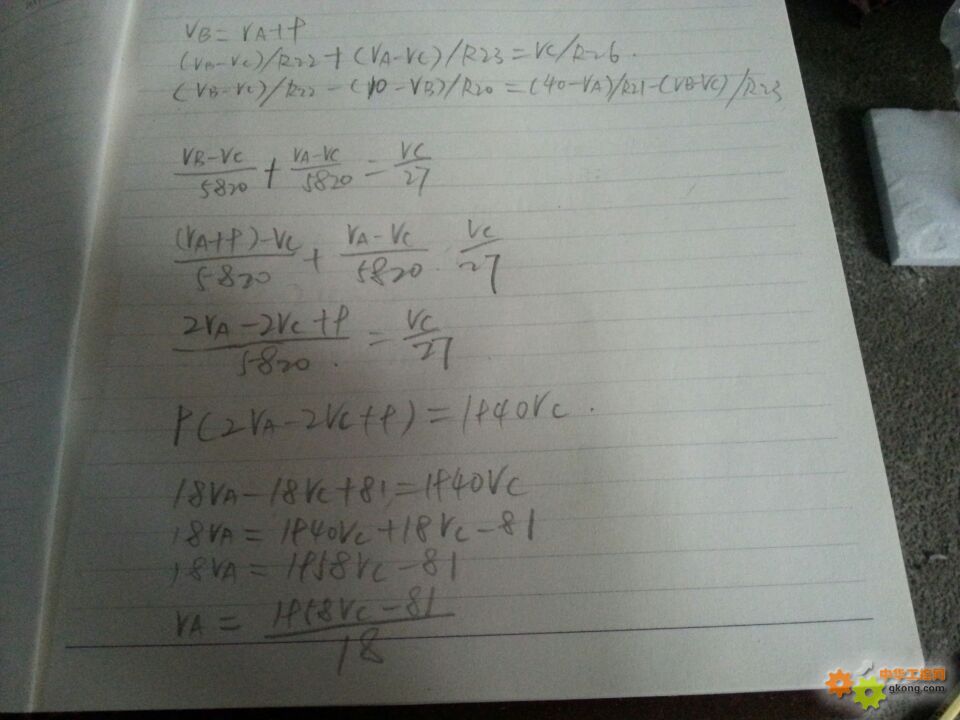 VB = VA+9
(VB-VC)/R22 + (VA-VC)/R23 = VC/R26.
(VB-VC)/R22 - (10-VB)/R20 = (40-VA)/R21-(VB-VC)/R23
VB-VC/5820 + VA-VC/5820 = VC/27
(VA+9)-VC/5820 + VA-VC/5820 VC/27
2VA-2VC+9/5820 = VC/27
9(2VA-2VC+9) = 1940VC.
18VA-18VC+81 = 1940VC
18VA = 1940VC+18VC-81
18VA = 1958VC-81
VA = 1958VC-81/18
中华工控网
gkong.com